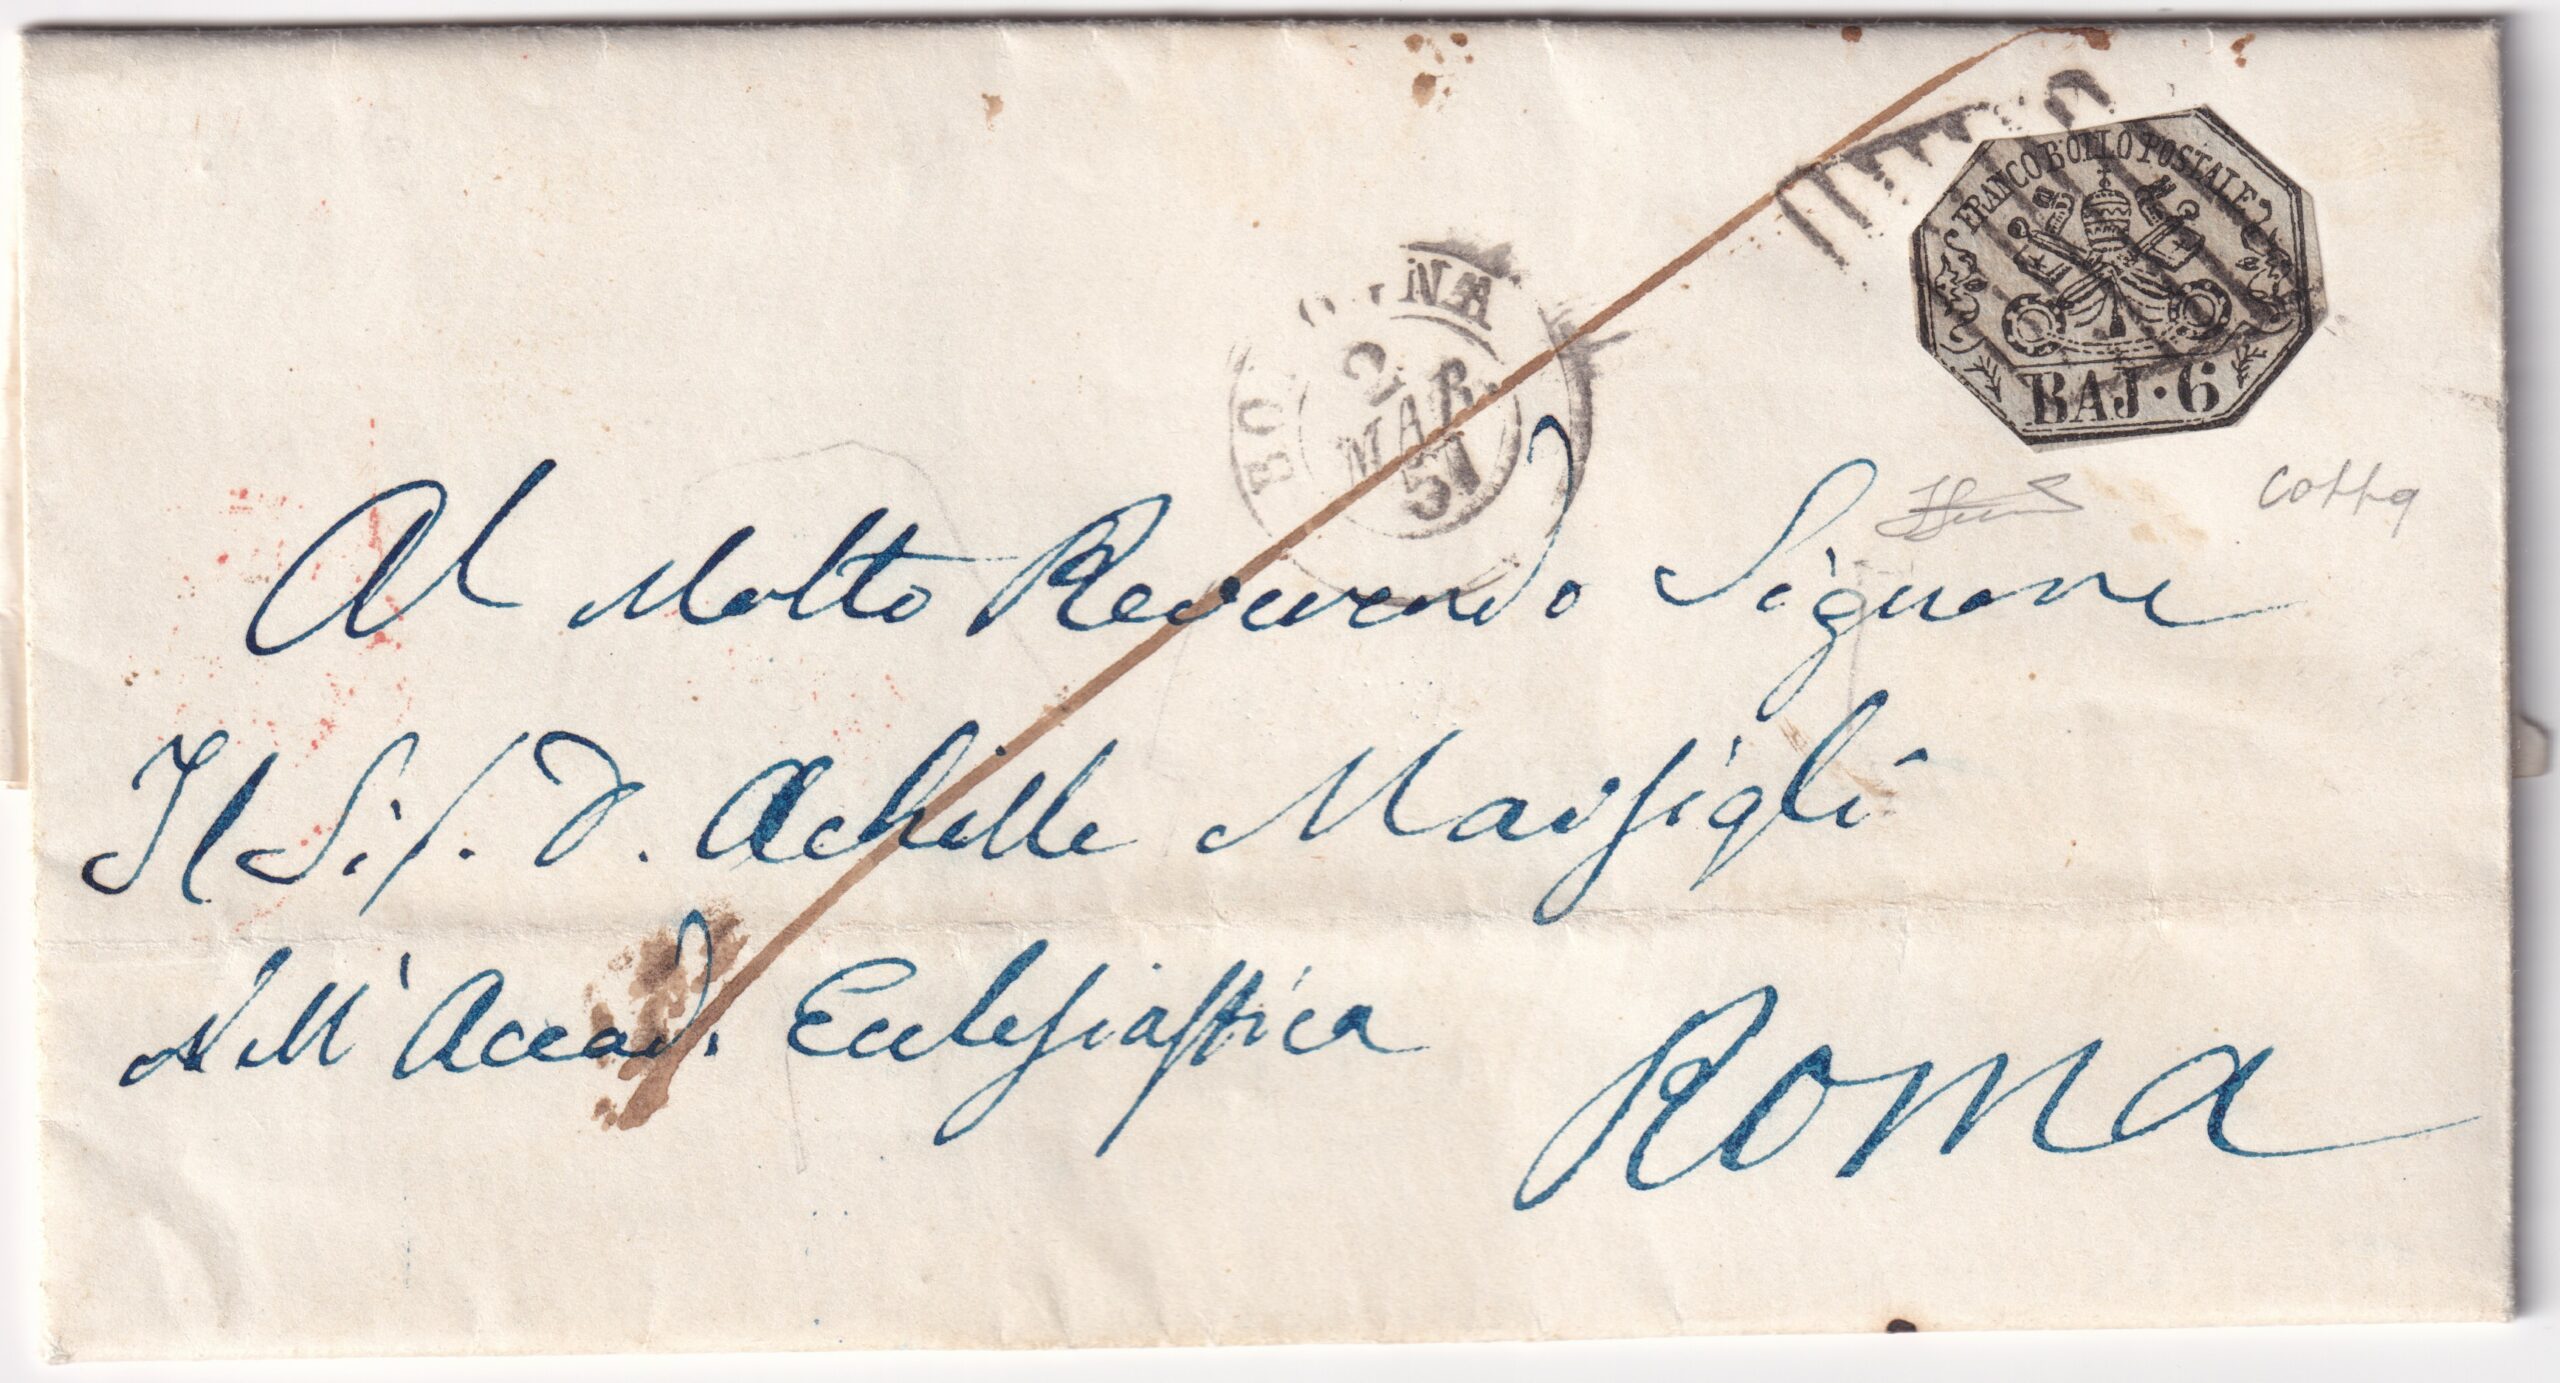 FRANCO BOLLO POSTALE
BAJ · 6
BOLOGNA
2
MAR
57
cotta
Al Molto Reverendo Signore
Il Sig. D. Achille Marsigli
nell' Accad. Ecclesiastica
Roma